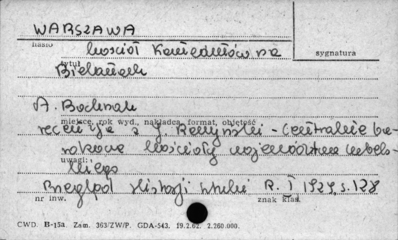 WARSZAWA
hasło
Kościół Kamedułów na
sygnatura
tytuł
Bielanach
A. Bochnak
miejsce, rok wyd., nakładca, format, objętość
recenzja z J. Remy - Centralne ba-
rokowe kościoły województwa lubels-
uwagi:
kiego
Przegląd Historji Sztuki R. I 1929, s. 128
nr inw.
znak klas.
CWD. B-15a. Zam. 363/ZW/P. GDA-543. 19.2.62. 2.260.000.